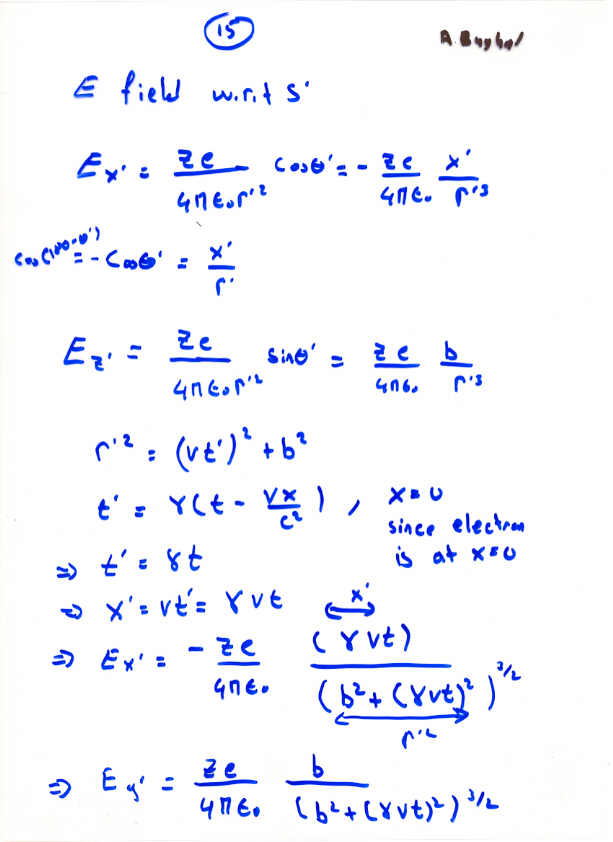 15
A. Baghal
E field w.r.t S'
Ex' = Ze / 4πϵ₀r'² cosθ' = - Ze / 4πϵ₀ x' / r'³
cos(180-θ') = - cosθ' = x' / r'
Ez' = Ze / 4πϵ₀r'² sinθ' = Ze / 4πϵ₀ b / r'³
r'² = (vt')² + b²
t' = γ(t - vx / c²) , x=0
since electron
is at x=0
⇒ t' = γt
⇒ x' = vt' = γvt
x'
⇒ Ex' = - Ze / 4πϵ₀ (γvt) / (b² + (γvt)²)^3/2
r'²
⇒ Ey' = Ze / 4πϵ₀ b / (b² + (γvt)²)^3/2